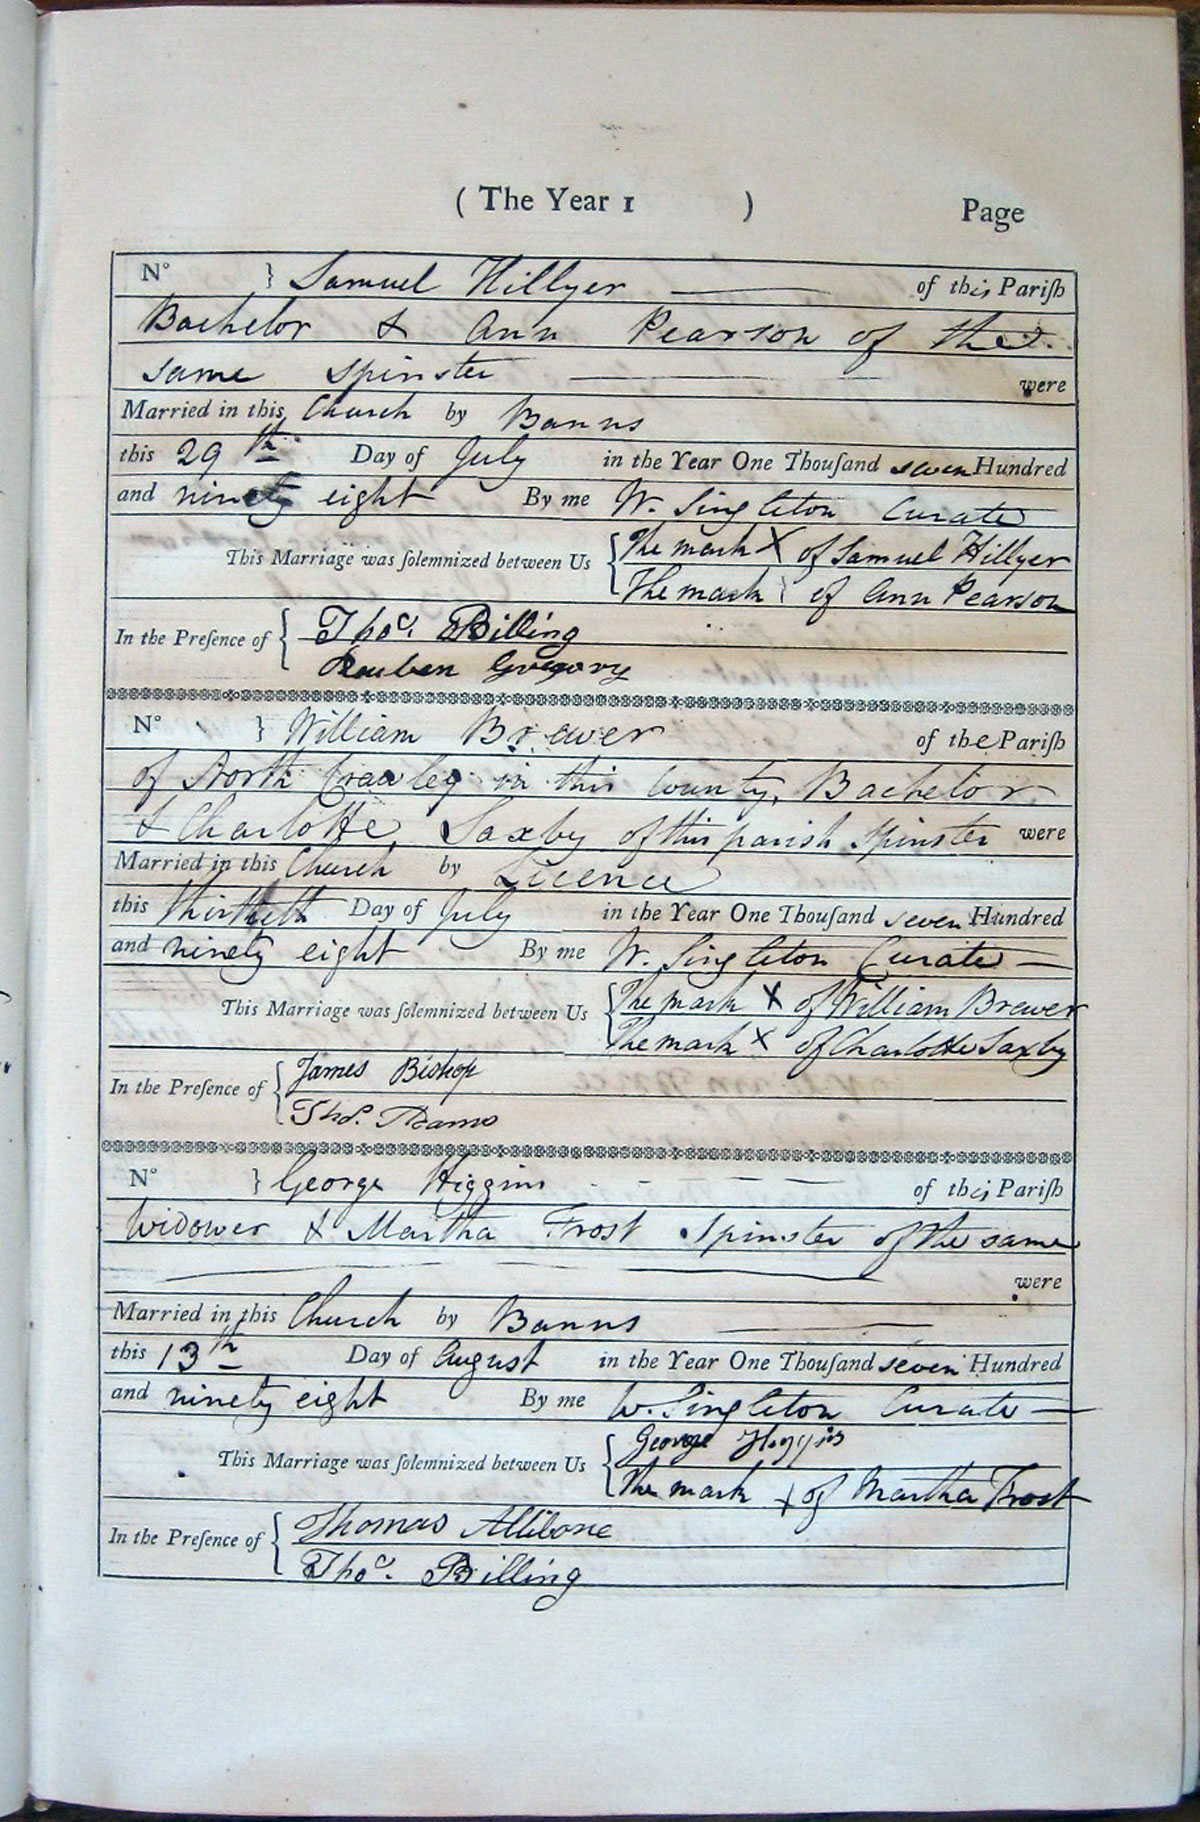 ( The Year 1 ) Page
N° } Samuel Hillyer of this Pariſh
Bachelor & Ann Pearson of the
same Spinster were
Married in this Church by Banns
this 29th Day of July in the Year One Thouſand seven Hundred
and ninety eight By me W. Singleton Curate
This Marriage was ſolemnized between Us { The mark X of Samuel Hillyer
The mark of Ann Pearson
In the Preſence of { Thos. Billing
Reuben Gregory
N° } William Brewer of the Pariſh
of North Crawley in this County, Bachelor
& Charlotte Saxby of this parish Spinster were
Married in this Church by Licence
this thirtieth Day of July in the Year One Thouſand seven Hundred
and ninety eight By me W. Singleton Curate
This Marriage was ſolemnized between Us { The mark X of William Brewer
The mark X of Charlotte Saxby
In the Preſence of { James Bishop
Thos.
N° } George Higgins of this Pariſh
Widower & Martha Frost Spinster of the same
were
Married in this Church by Banns
this 13th Day of August in the Year One Thouſand seven Hundred
and ninety eight By me W. Singleton Curate
This Marriage was ſolemnized between Us { George Higgins
The mark X of Martha Frost
In the Preſence of { Thomas Allibone
Thos. Billing